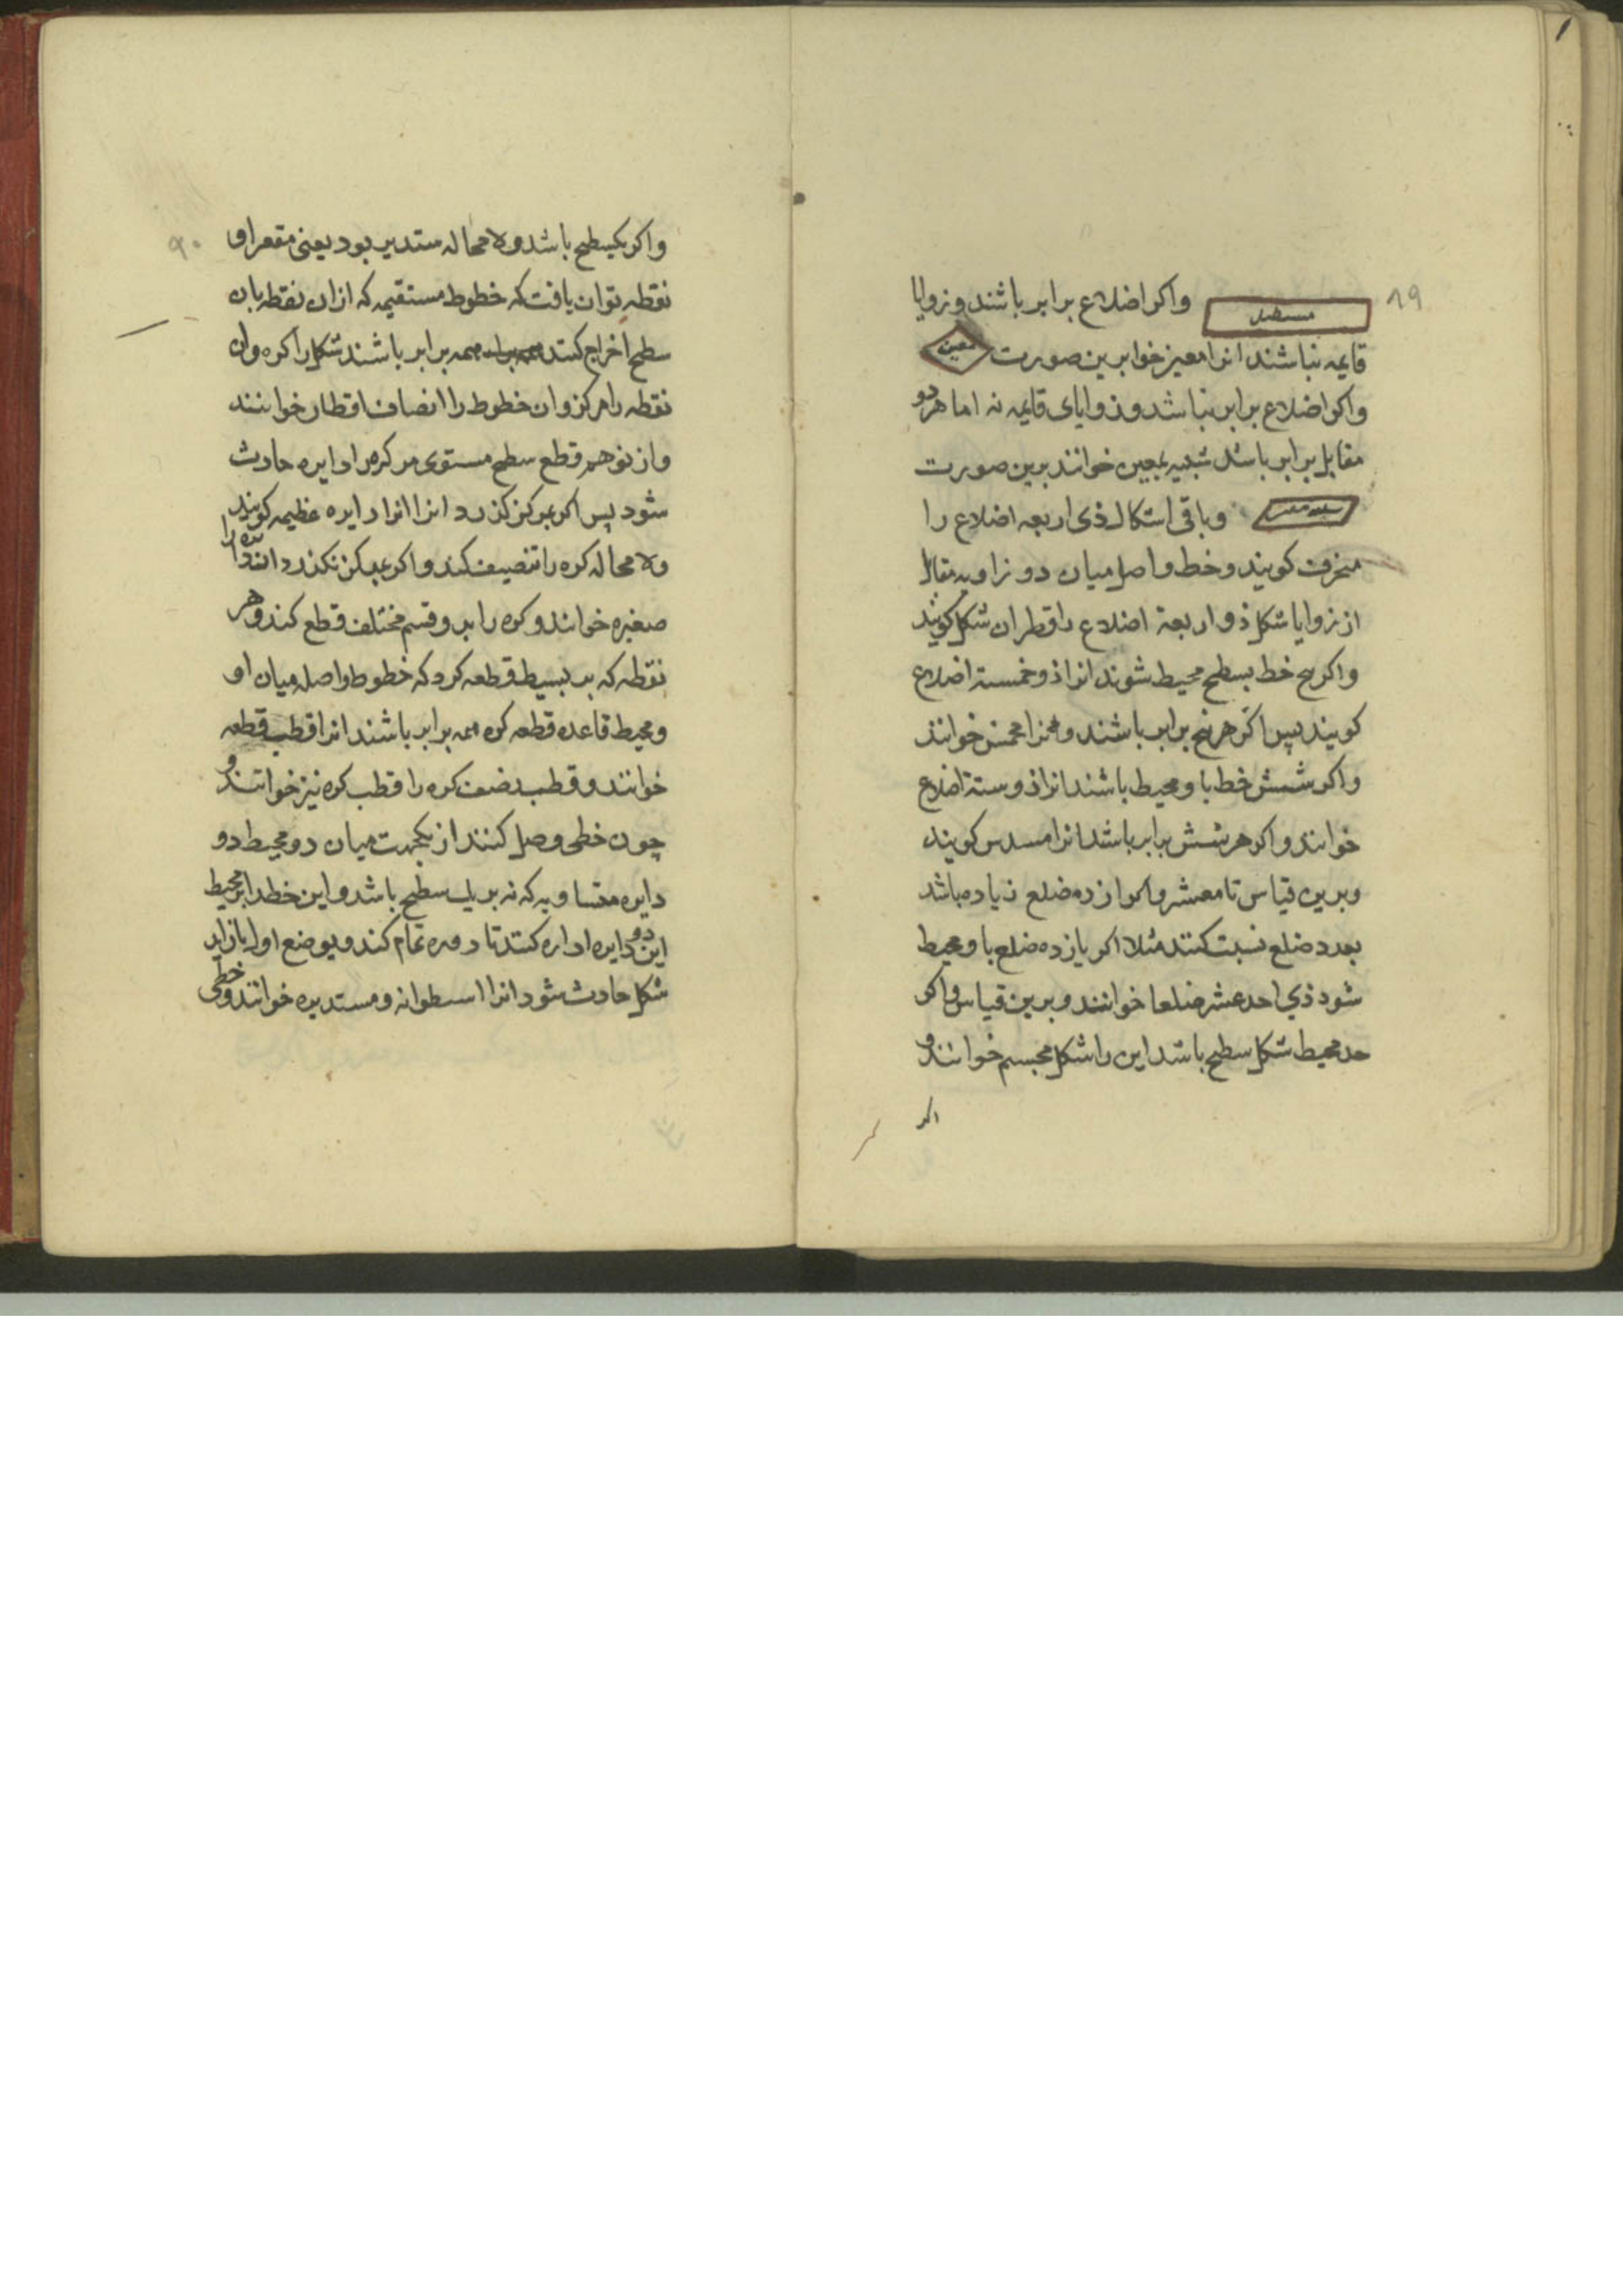 ۸۹
مستطیل واکر اضلاع برابر باشند و زوایا
قایمه نباشند انرا معین خوا برین صورت معین
واکر اضلاع برابر نباشد و زوایای قایمه نه اما هر دو
مقابل برابر باشد شبیه بمعین خوانند برین صورت
شبیه معین وباقی اشکال ذی اربعه اضلاع را
منحرف کویند و خط واصل میان دو زاویه مقابل
از زوایا شکل ذو اربعة اضلاع را قطر ان شکل کویند
واکر پنج خط بسطح محیط شوند انرا ذو خمسة اضلاع
کویند پس اکر هر پنج برابر باشند مخمس خوانند
واکر شش خط با و محیط باشند انرا ذو ستة اضلاع
خوانند واکر هر شش برابر باشد انرا مسدس کویند
وبرین قیاس تا معشر واکر از ده ضلع زیاده باشد
بعدد ضلع نسبت کنند مثلا اکر یازده ضلع با و محیط
شود ذی احد عشر ضلعا خوانند و برین قیاس واکر
حد محیط شکل سطح باشد این را شکل مجسم خوانند و
اکر
۹۰
واکر یکسطح باشد ولا محاله مستدیر بود یعنی مقعر او
نقطه توان یافت که خطوط مستقیمه که ازان نقطه بان
سطح اخراج کنند همه برابر باشند شکل را کره وان
نقطه را مرکز وان خطوط را انصاف اقطار خوانند
واز توهم قطع سطح مستوی مر کره را دایره حادث
شود پس اکر بمرکز کذرد انرا انرا دایره عظیمه کویند
ولا محاله کره را تنصیف کند واکر بمرکز نکذرد
صغیره خوانند و کره را بدو قسم مختلف قطع کند و هر
نقطه که بر بسیط قطعه کرد که خطوط واصله میان او
ومحیط قاعده قطعه کره همه برابر باشند انرا قطب قطعه
خوانند و قطب نصف کره را قطب کره نیز خوانند و
چون خطی وصل کنند از یکجهت میان دو محیط دو
دایره متساویه که نه بر یک سطح باشد و این خط را بر محیط
این دو دایره اداره کنند تا دوره تمام کند و بوضع اول باز اید
شکل حادث شود انرا اسطوانه و مستدیره خوانند و خطی